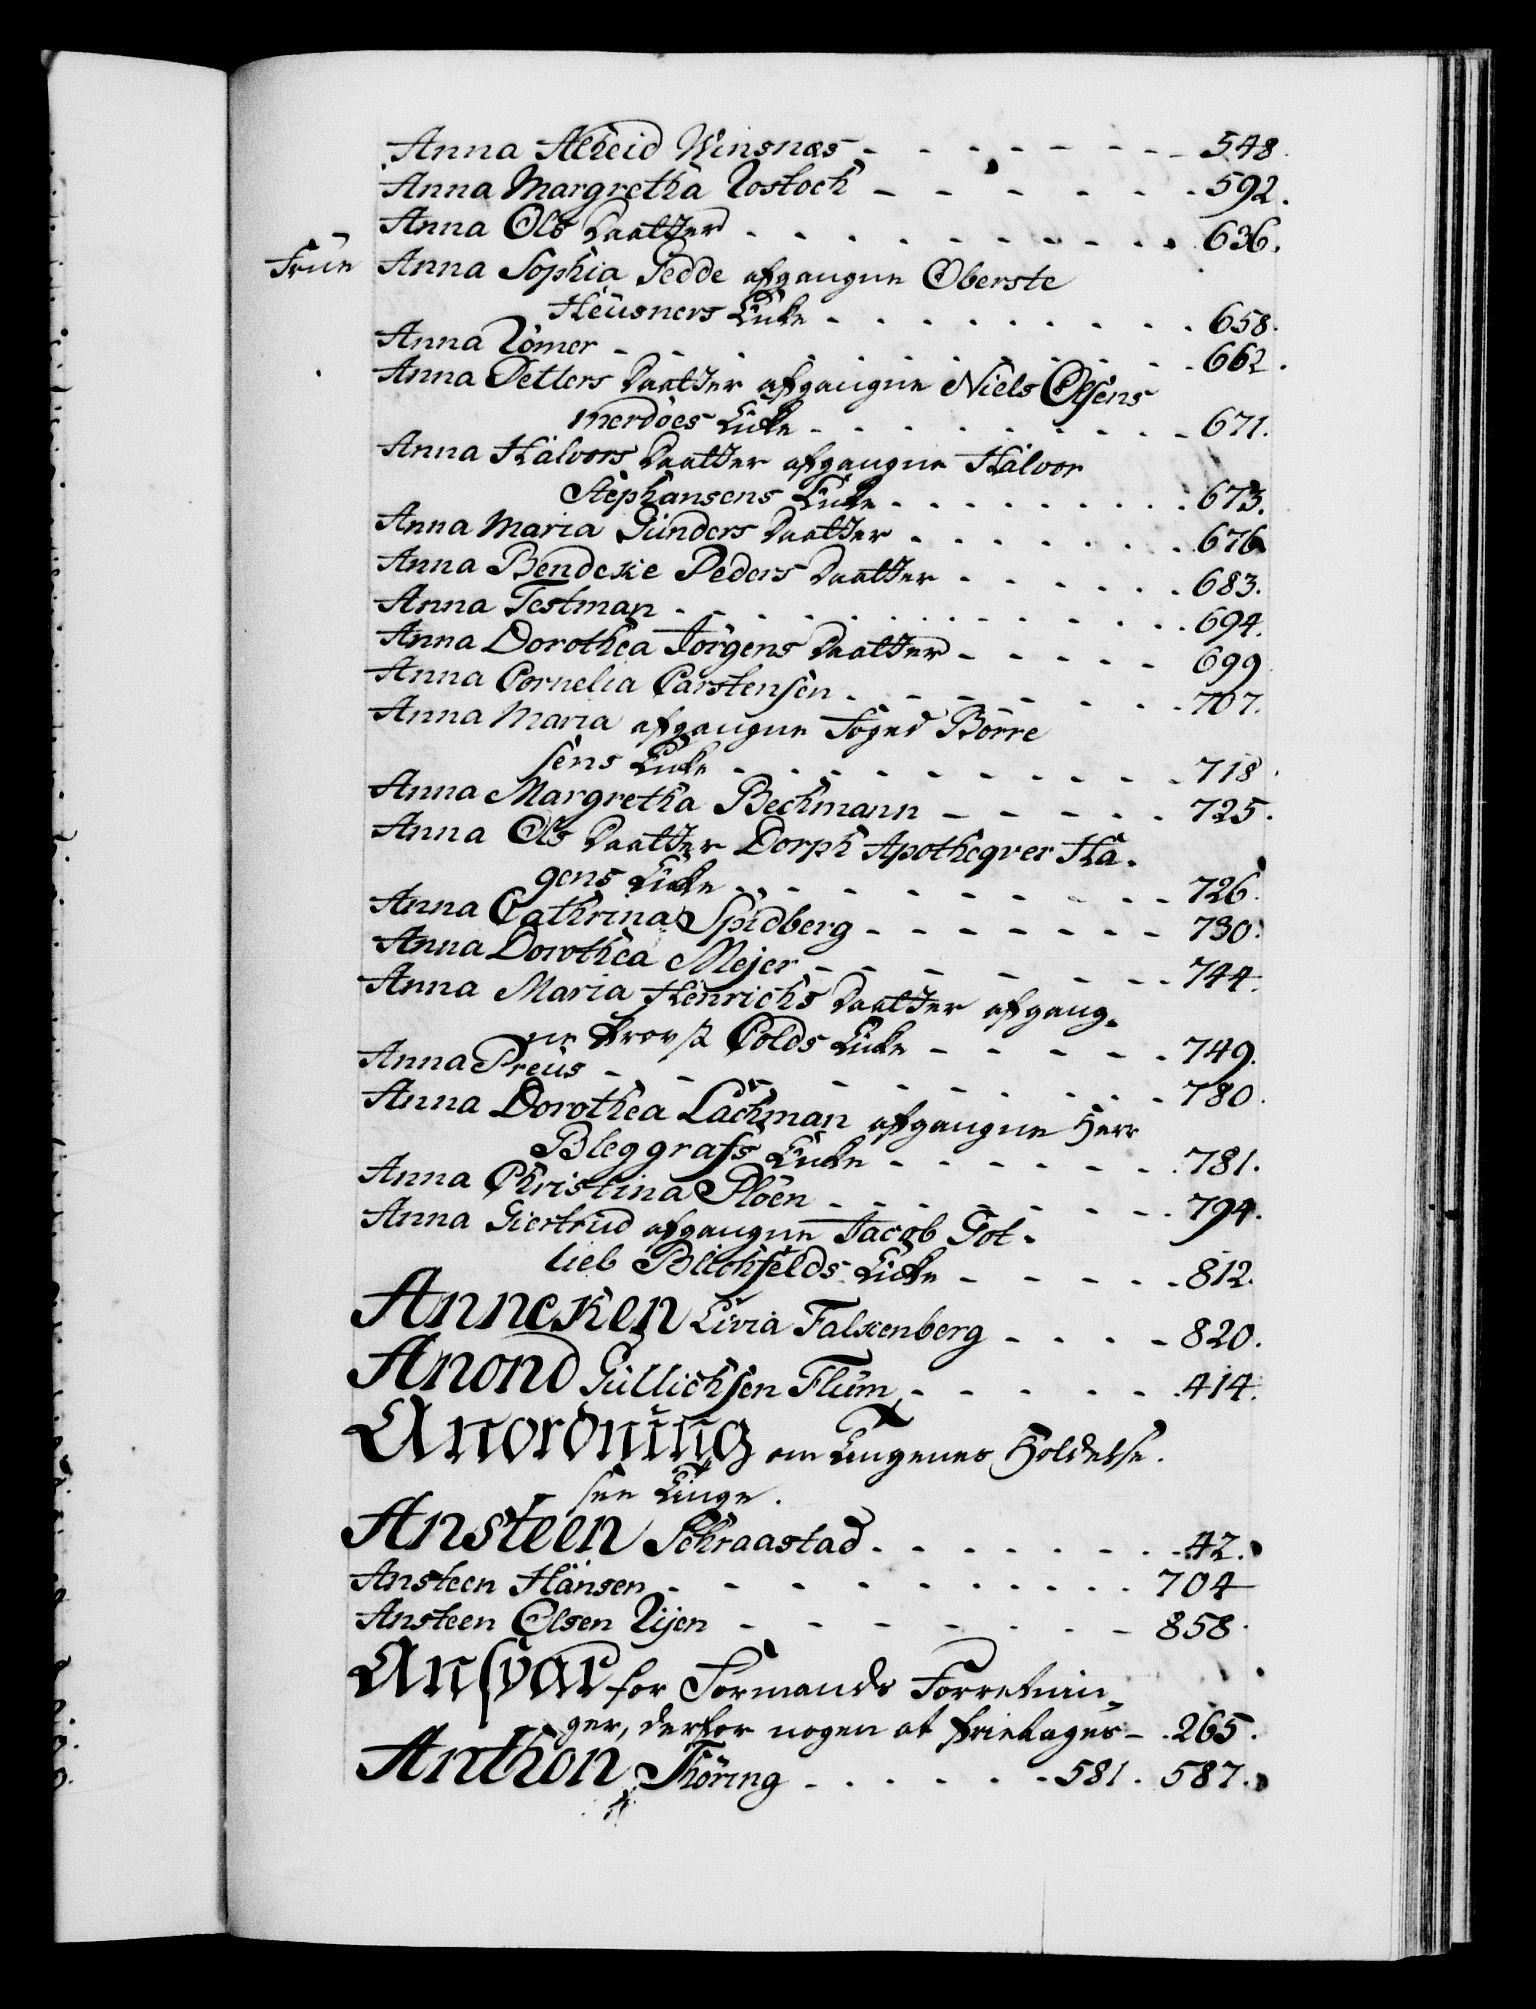 Anna Alheid Winsnæs - - - - - - - 548.
Anna Margretha Rostoch - - - - - - 592.
Anna Ols Daatter - - - - - - - - - 636.
Frue Anna Sophia Gedde afgangne Oberste
Heusners Enke - - - - - - - - 658.
Anna Römer - - - - - - - - - - 662.
Anna Detlers Daatter afgangne Niels Olsens
merdöes Enke - - - - - - - - 671.
Anna Halvors Daatter afgangne Halvor
Stephansens Enke - - - - - - - 673.
Anna Maria Gunders Daatter - - - - - - 676
Anna Bendeke Peders Daatter - - - - - 683.
Anna Testman - - - - - - - - - - 694.
Anna Dorothea Jörgens Daatter - - - - - 699
Anna Cornelia Carstensen - - - - - - - 707.
Anna Maria afgangne Foged Börre
sens Enke - - - - - - - - - - 718.
Anna Margretha Bechmann - - - - - 725.
Anna Ols Daatter Dorph Apotheqver Ha-
gens Enke - - - - - - - - - 726.
Anna Cathrina Spidberg - - - - - - - 730.
Anna Dorothea Mejer - - - - - - - 744.
Anna Maria Henrichs Daatter afgang-
ne Provst Colds Enke - - - - - 749.
Anna Preus - - - - - - - - - 780.
Anna Dorothea Lachman afgangne Herr
Bleggrafs Enke - - - - - - 781.
Anna Christina Plöen - - - - - - - 794.
Anna Giertrud afgangne Jacob Got-
lieb Blichfelds Enke - - - - - 812.
Anneken Livia Falkenberg - - - - 820.
Anond Gullichsen Flum - - - - - 414.
Anordning om Tingenes Holdelse.
see Tinge.
Ansteen Schraastad - - - - - - - 42.
Ansteen Hansen - - - - - - - - - 704
Ansteen Olsen Rijen - - - - - - - 858.
Ansvar for Formands Forretnin-
ger, derfor nogen at fritages - 265.
Anthon Thöring - - - - - - 581. 587.